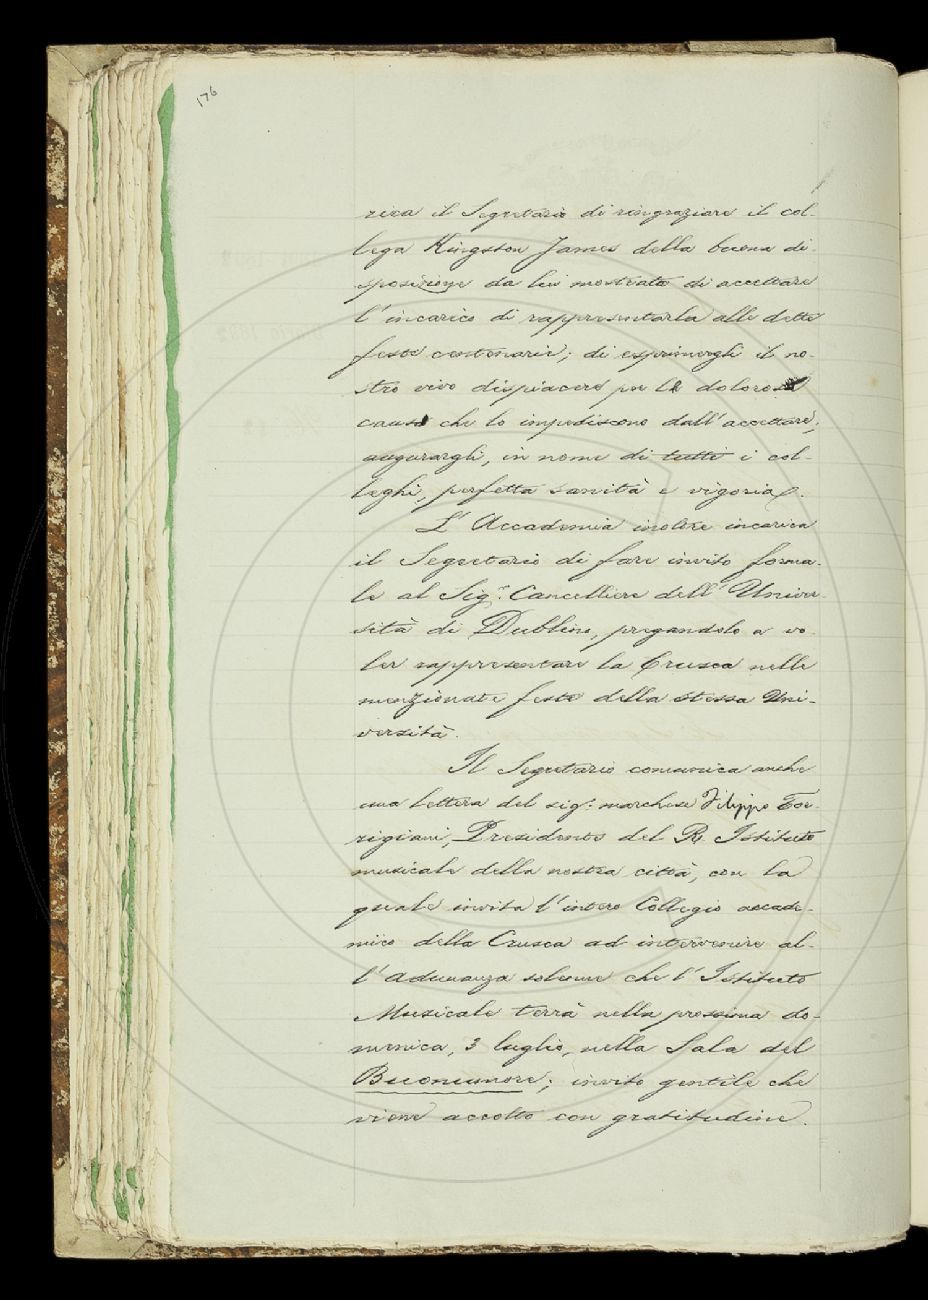 176
rica il Segretario di ringraziare il col-
lega Kingston James della buona di-
sposizione da lui mostrata di accettare
l'incarico di rappresentarla alle dette
feste centenarie; di esprimergli il no-
stro vivo dispiacere per la dolorosa
causa che lo impediscono dall'accettare;
augurargli, in nome di tutti i col-
leghi, perfetta sanità e vigoria.
L'Accademia inoltre incarica
il Segretario di fare invito forma-
le al Sigr. Cancelliere dell'Univer-
sità di Dublino, pregandolo a vo-
ler rappresentare la Crusca nelle
menzionate feste della stessa Uni-
versità.
Il Segretario comunica anche
una lettera del sig: marchese Filippo Tor-
rigiani, Presidente del R. Istituto
musicale della nostra città, con la
quale invita l'intero Collegio accade-
mico della Crusca ad intervenire al-
l'adunanza solenne che l'Istituto
Musicale terrà nella prossima do-
menica, 3 luglio, nella Sala del
Buonumore; invito gentile che
viene accolto con gratitudine.